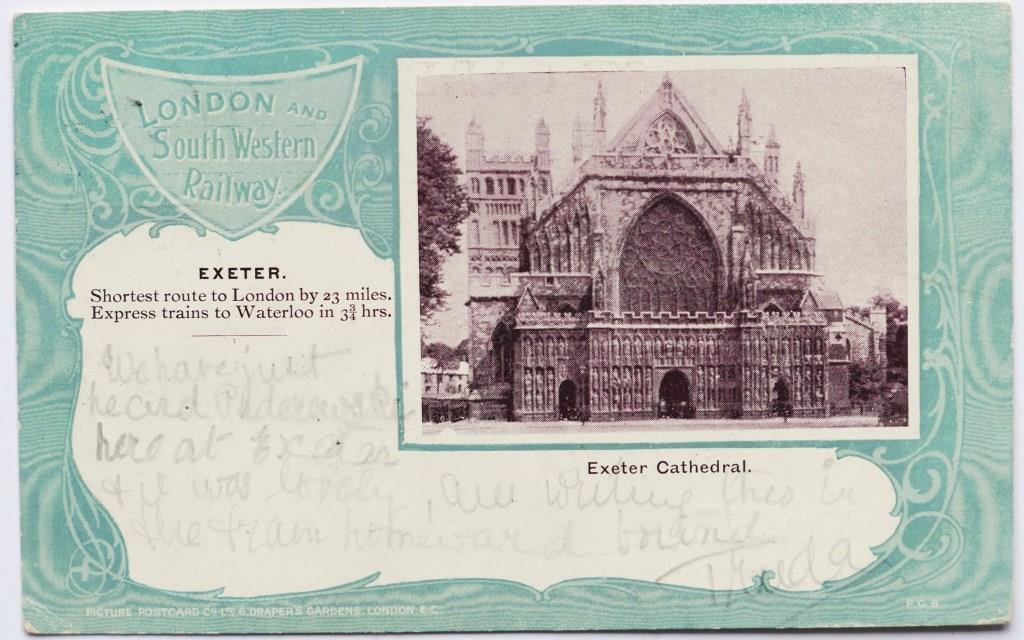 LONDON AND
South Western
Railway.
EXETER.
Shortest route to London by 23 miles.
Express trains to Waterloo in 3¾ hrs.
We have just
heard Paderewski
here at Exeter
& it was lovely, are writing this in
the train homeward bound.
Exeter Cathedral.
PICTURE POSTCARD Co LTD 6, DRAPER'S GARDENS, LONDON, E.C.
P.G.8